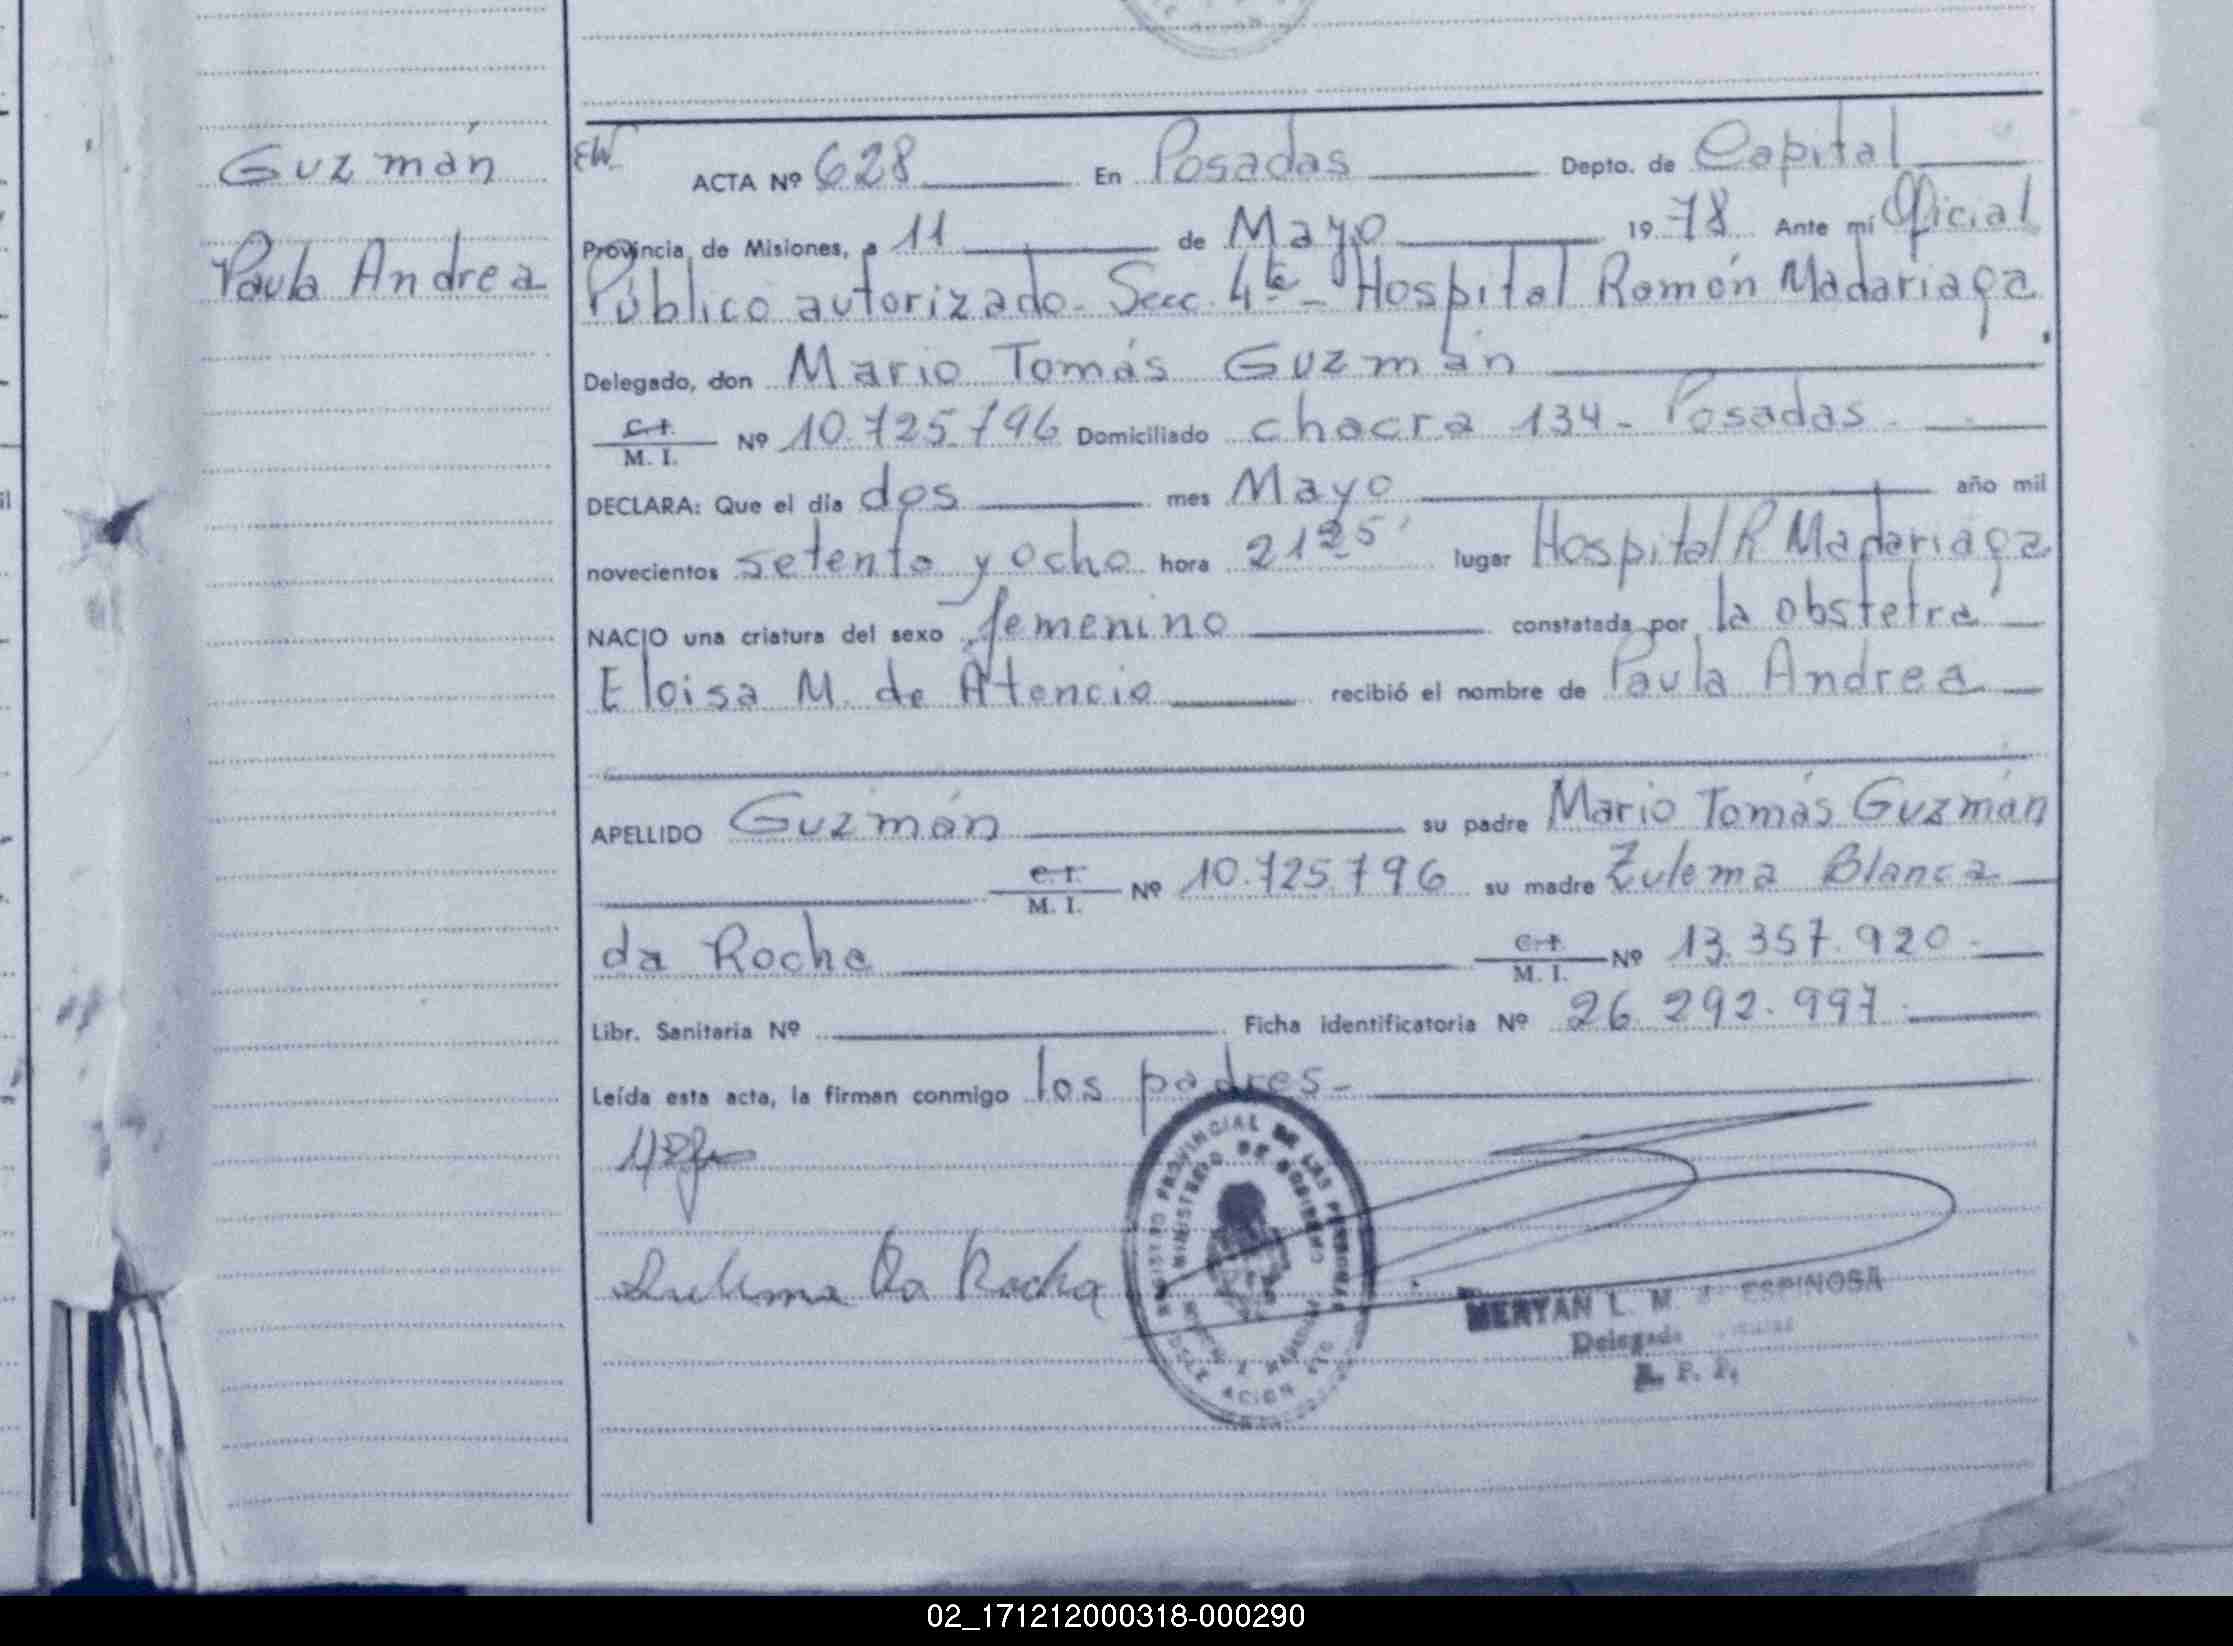 Guzmán
Paula Andrea
EW.
ACTA Nº 628 En Posadas Depto. de Capital
Provincia de Misiones, a 11 de Mayo 1978 Ante mí Oficial
Público autorizado. Secc. 4ta - Hospital Ramón Madariaga.
Delegado, don Mario Tomás Guzmán
C.I.
M. I. Nº 10.725.796 Domiciliado chacra 134 - Posadas.
DECLARA: Que el día dos mes Mayo año mil
novecientos setenta y ocho hora 2125' lugar Hospital R Madariaga
NACIO una criatura del sexo femenino constatada por la obstetra
Eloisa M. de Atencio recibió el nombre de Paula Andrea
APELLIDO Guzmán su padre Mario Tomás Guzmán
C.I.
M. I. Nº 10.725.796 su madre Zulema Blanca
da Rocha C.I.
M. I. Nº 13.357.920.
Libr. Sanitaria Nº Ficha identificatoria Nº 26.292.997.
Leída esta acta, la firman conmigo los padres-
Zulema Da Rocha
REGISTRO PROVINCIAL DE LAS PERSONAS
MINISTERIO DE GOBIERNO
MERYAN L. M. ESPINOSA
Delegada
R. P. P.
02_171212000318-000290